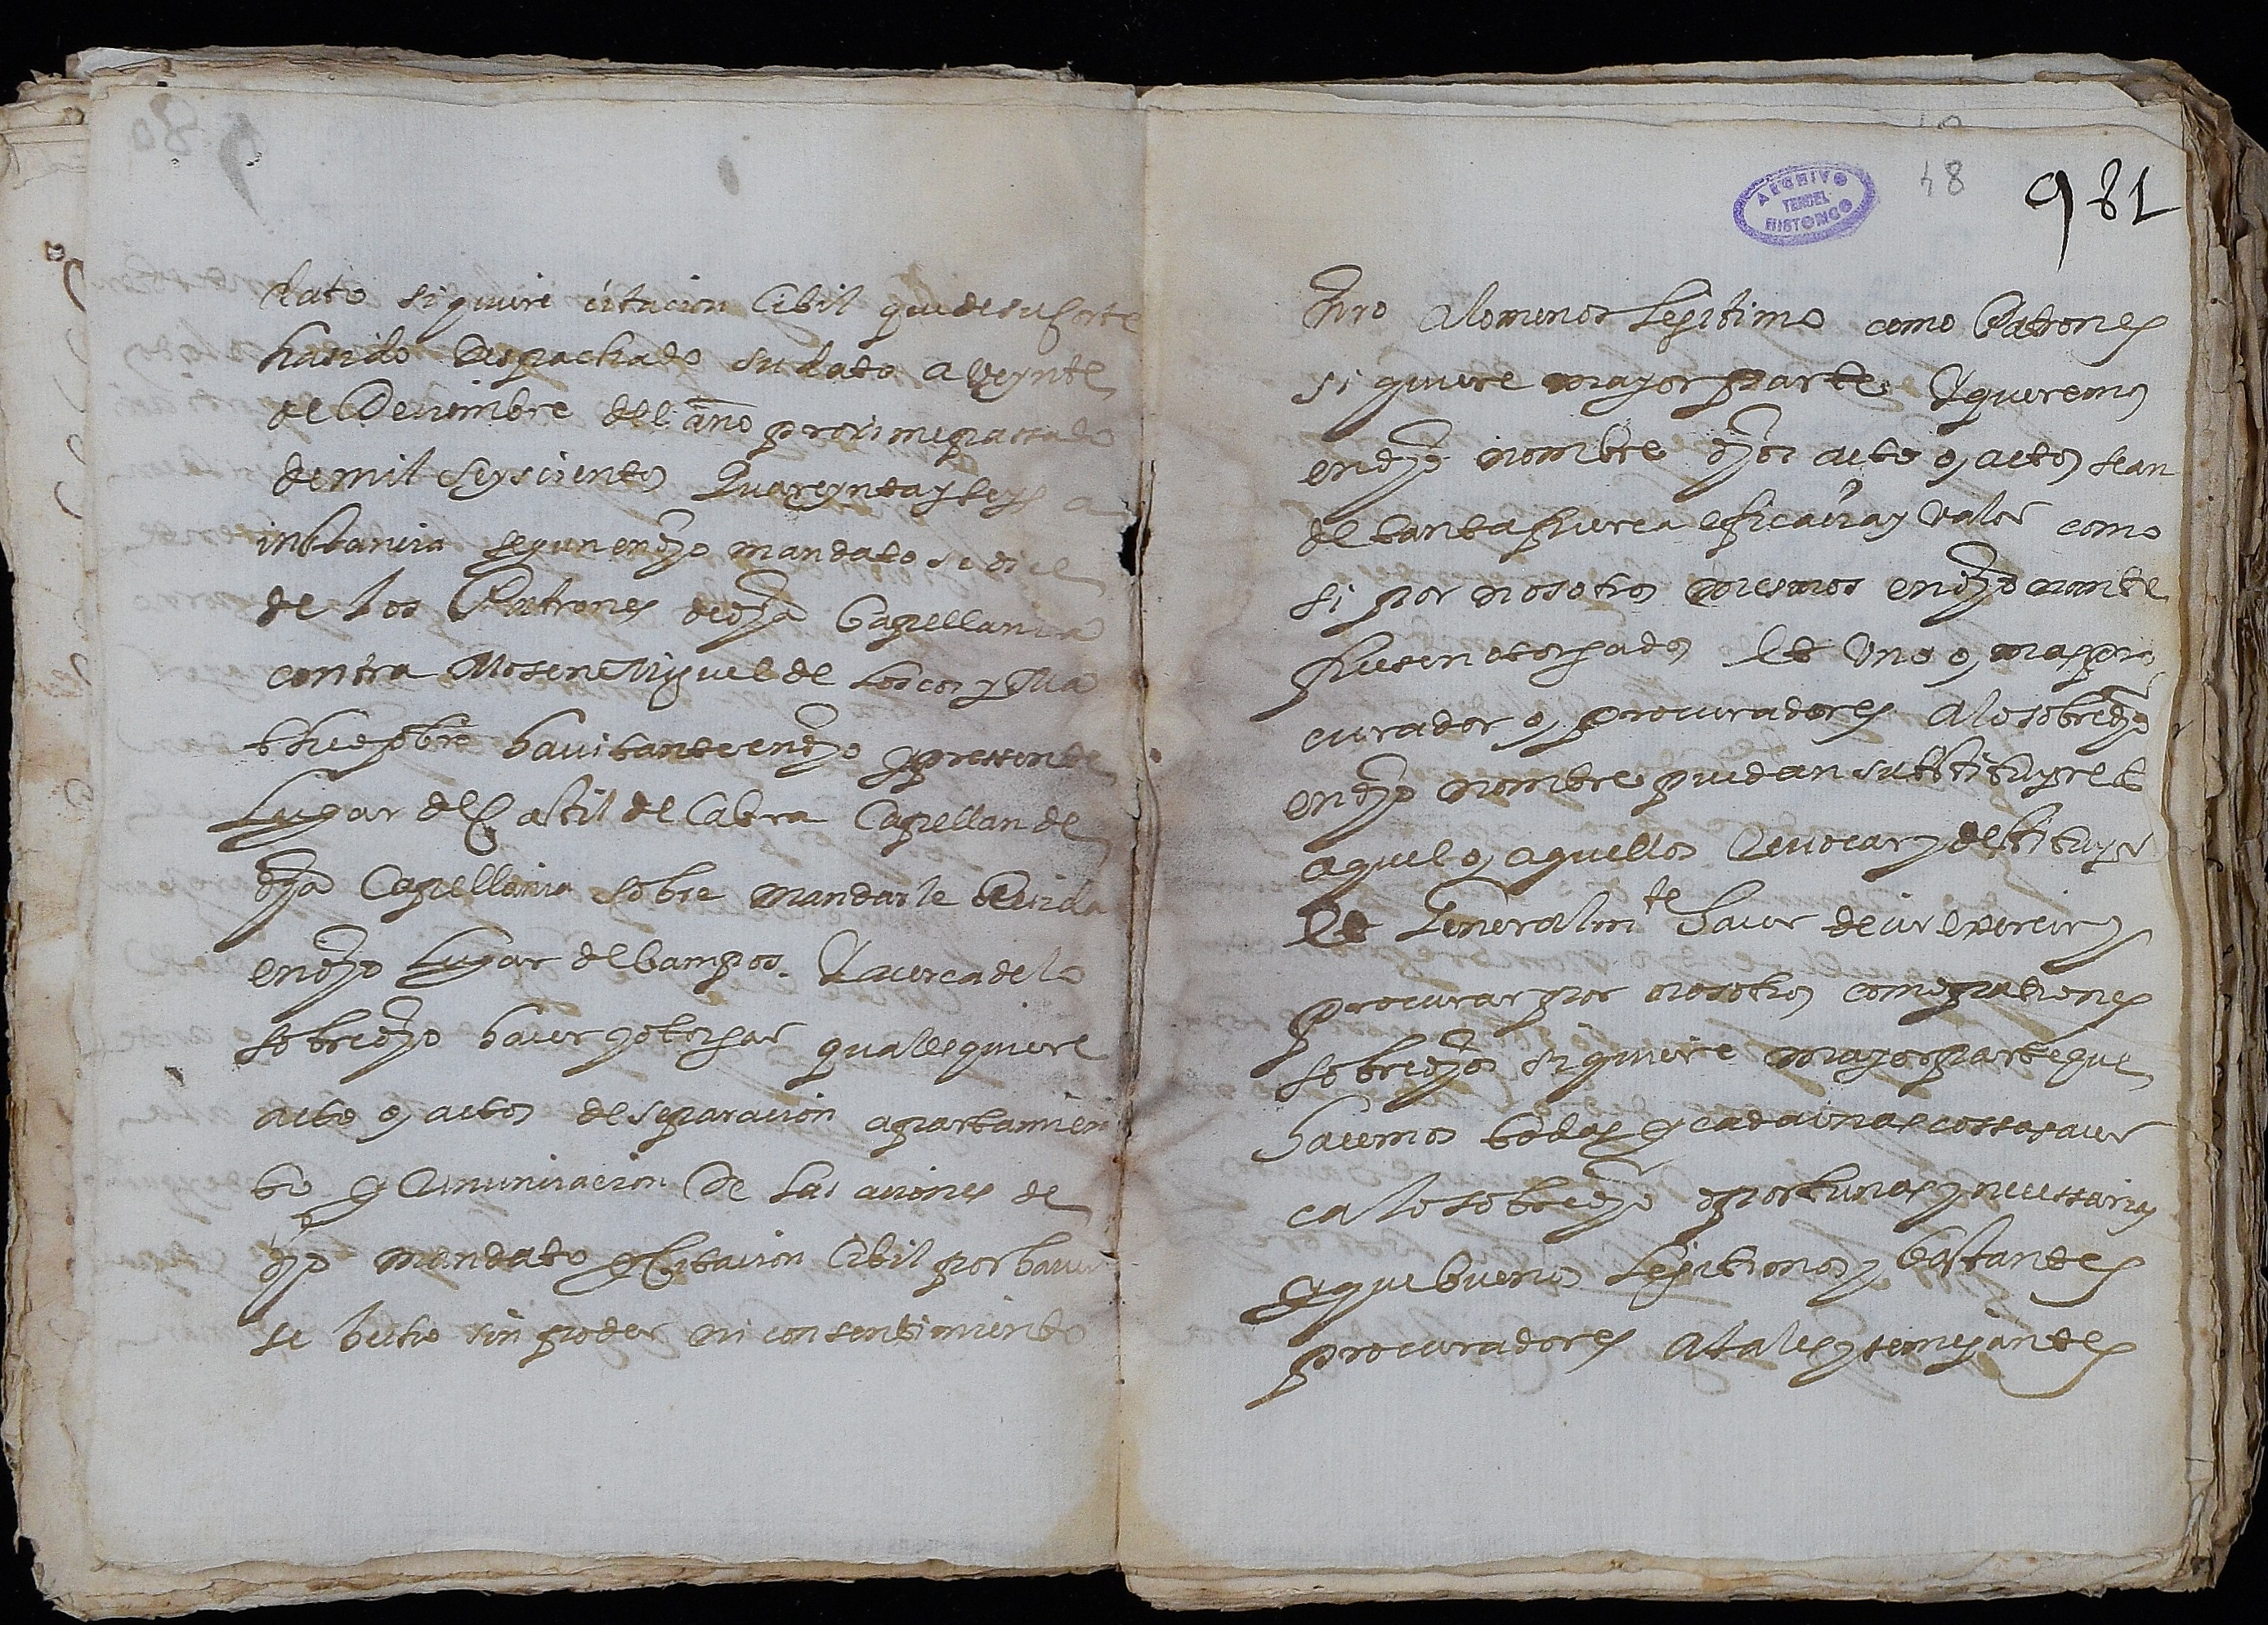 dato siquiere citacion Cibil que de su Corte
ha sido despachado su dato a veynte
de Deciembre del año proximepassado
de mil seyscientos Quareyntayseys a
instancia segun en dho mandato se dice
de los Patrones de dha Capellania
contra Mosen Miguel de Loscos y Ma
theo pobre havitante en dho y pressente
Lugar del Castil de Cabra Capellan de
dha Capellania sobre mandarle Resida
en dho Lugar de Campos. Y acerca de lo
sobredho hacer y otorgar qualesquiere
acto o, actos de separacion apartamien
to y Renunciacion de las actiones de
dho mandato y Citacion Cibil por haver
se hecho sin poder ni consentimiento
48
981
ARCHIVO
TERUEL
HISTORICO
nro alomenos Legitimo como Patrones
siquiere mayor parte. Y queremos
en dho nombre dhos acto o, actos sean
de tanta fuerca efficacia y valor como
si por nosotros mesmos en dho nombre
fuesen otorgados Et Uno o, mas pro
curador o, procuradores alo sobredho
en dho nombre puedan substituyr et
aquel o, aquellos Revocar y destituyr
Et Generalmte hacer decir exercir y
procurar por nosotros como patrones
sobredhos siquiere mayor parte que
hacemos todas y cada unas cossas acer
ca lo sobredho oportunas y necessarias
Y que buenos Legitimos y bastantes
procuradores a tales y semejantes